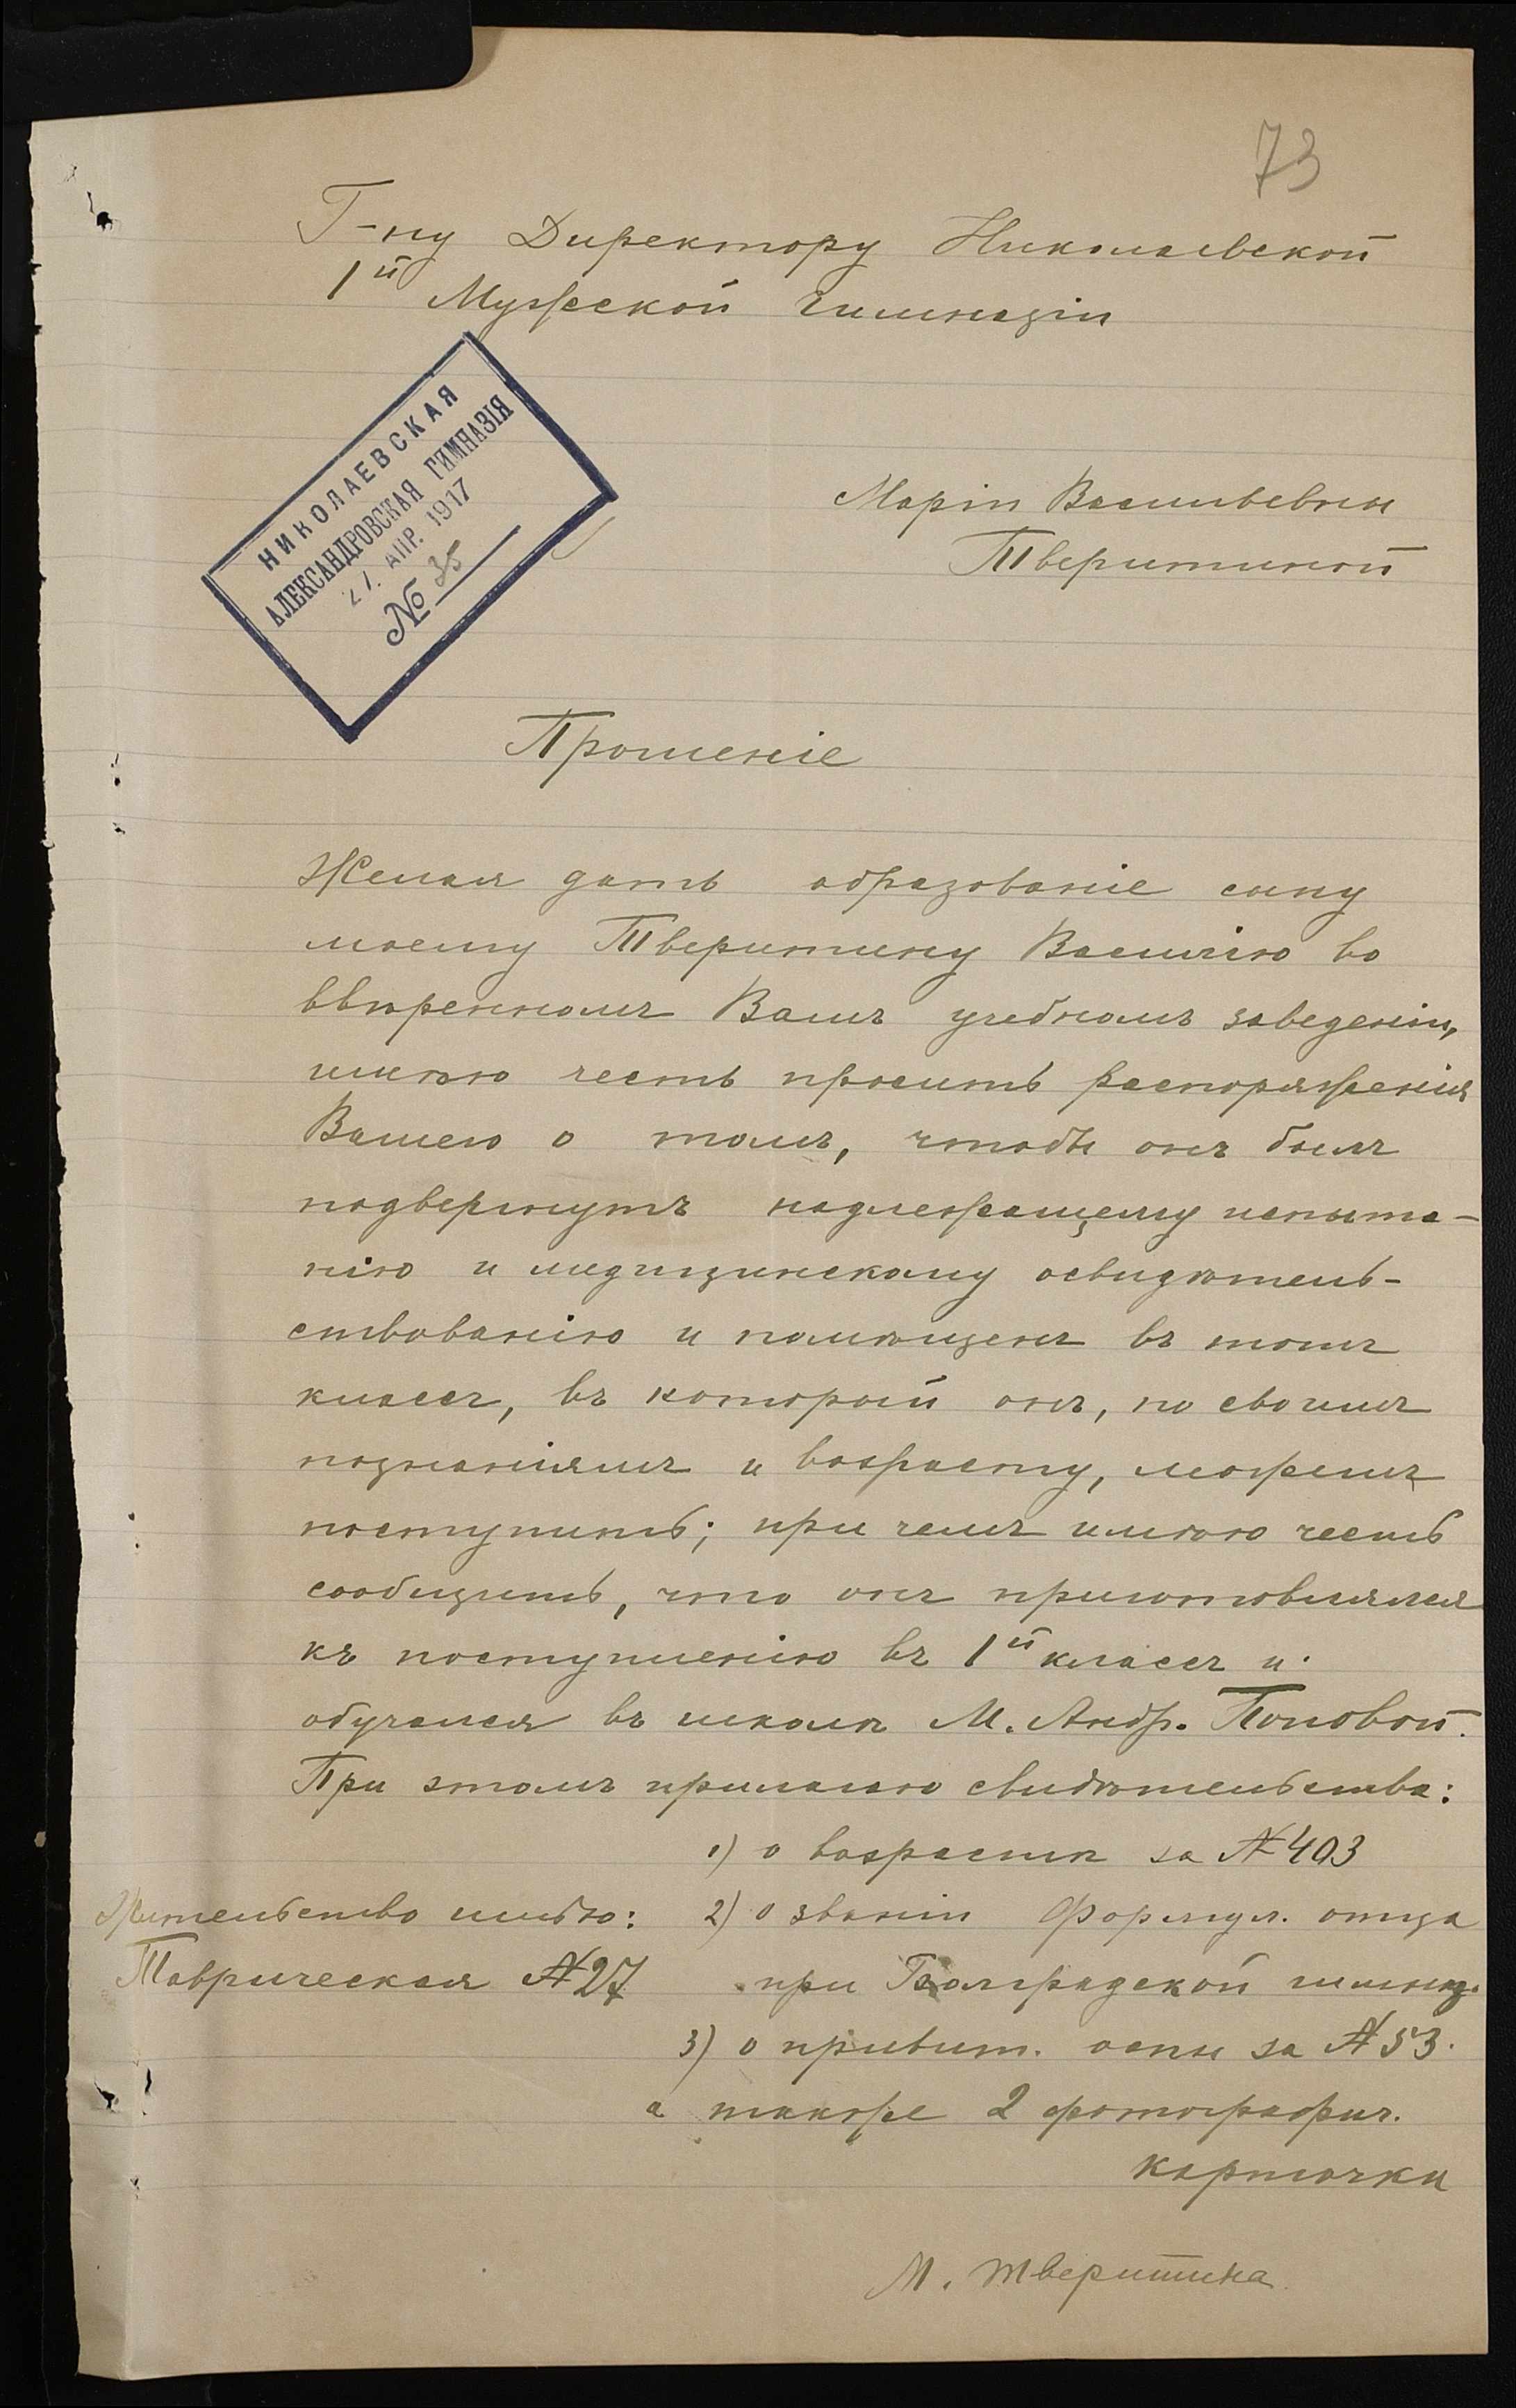 73
Г-ну Директору Николаевской
1й Мужской гимназіи
НИКОЛАЕВСКАЯ
АЛЕКСАНДРОВСКАЯ ГИМНАЗІЯ
27. АПР. 1917
№ 35
Маріи Васильевны
Тверитиной
Прошеніе
Желая дать образованіе сыну
моему Тверитину Василію во
ввѣренномъ Вамъ учебномъ заведеніи,
имѣю честь просить распоряженія
Вашего о томъ, чтобы онъ былъ
подвергнутъ надлежащему испыта-
нію и медицинскому освидѣтель-
ствованію и помѣщенъ въ тотъ
классъ, въ который онъ, по своимъ
познаніямъ и возрасту, можетъ
поступить; при чемъ имѣю честь
сообщить, что онъ приготовлялся
къ поступленію въ 1й классъ и
обучался въ школѣ М. Андр. Поповой.
При этомъ прилагаю свидѣтельства:
1) о возрастѣ за № 403
2) о званіи Формул. отца
при Болградской гимназ.
3) о привит. оспы за № 53.
а также 2 фотографич.
карточки
Жительство имѣю:
Таврическая № 27
М. Тверитина